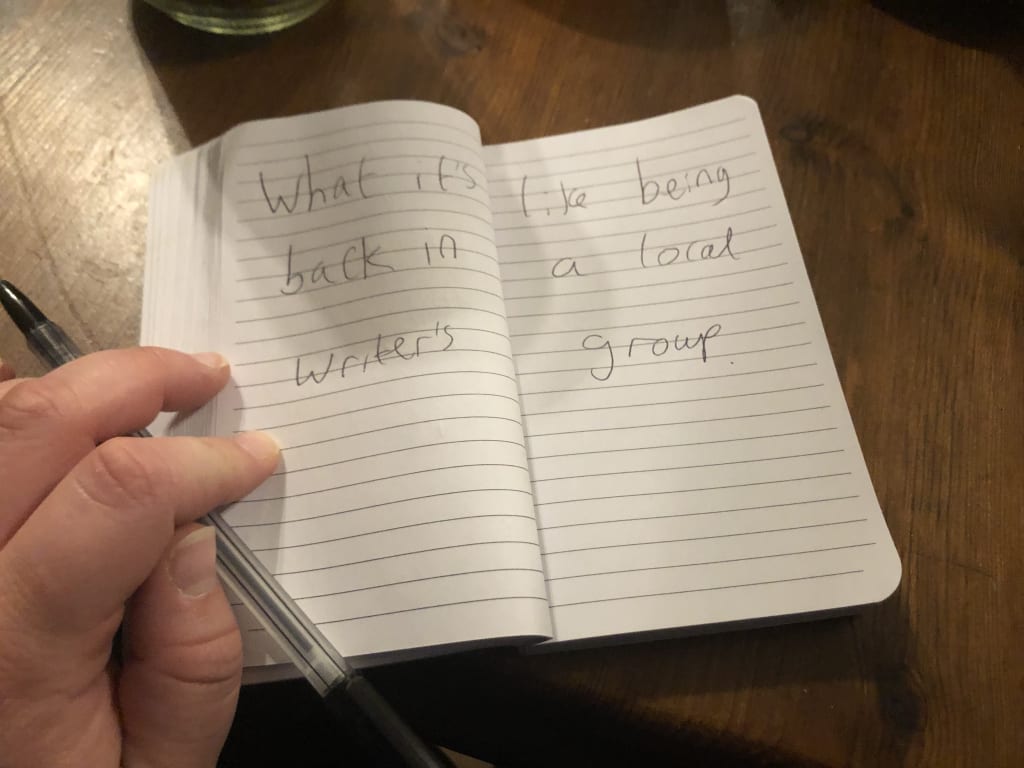 What it's like being
back in a local
writer's group.